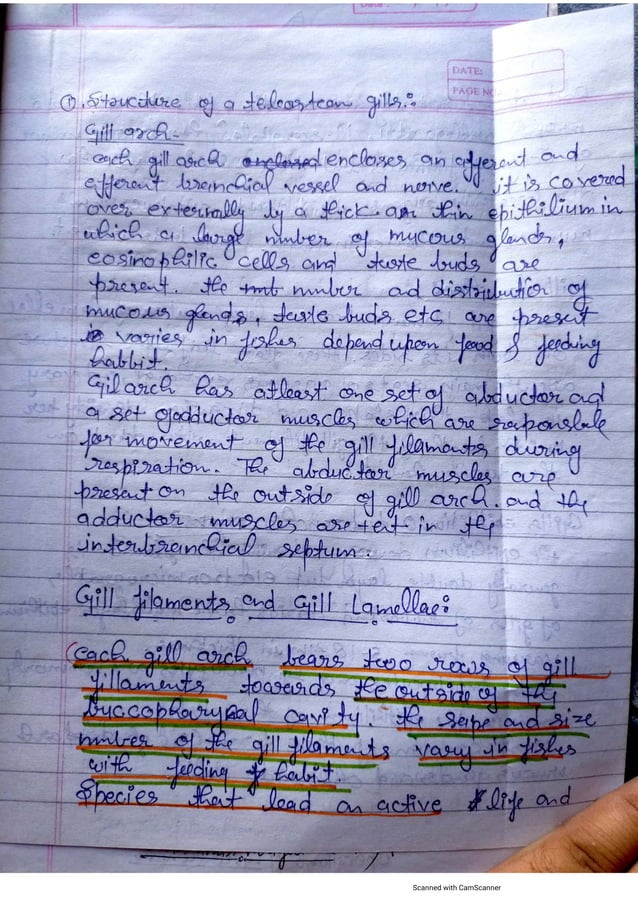 Date:
DATE:
PAGE NO
① Structure of a teleostean gills:
Gill arch-
each gill arch encloses an afferent and
efferent branchial vessel and nerve. it is covered
over externally by a thick or thin epithilium in
which a large number of mucous glands,
eosinophilic cells and taste buds are
present. the number ad distribution of
mucous glands, taste buds etc are present
varies in fishes depend upon food & feeding
habbit.
Gil arch has atleast one set of abductor and
a set of adductor muscles which are responsbale
for movement of the gill filaments during
respiration. The abductor muscles are
present on the outside of gill arch. and the
adductor muscles are in the
interbranchial septum.
Gill filaments and Gill Lamellae:
(each gill arch bears two rows of gill
fillaments towards the outside of the
buccopharynal cavity. the sape and size
number of the gill filaments vary in fishes
with feeding habit.
Species that lead an active life and
Scanned with CamScanner